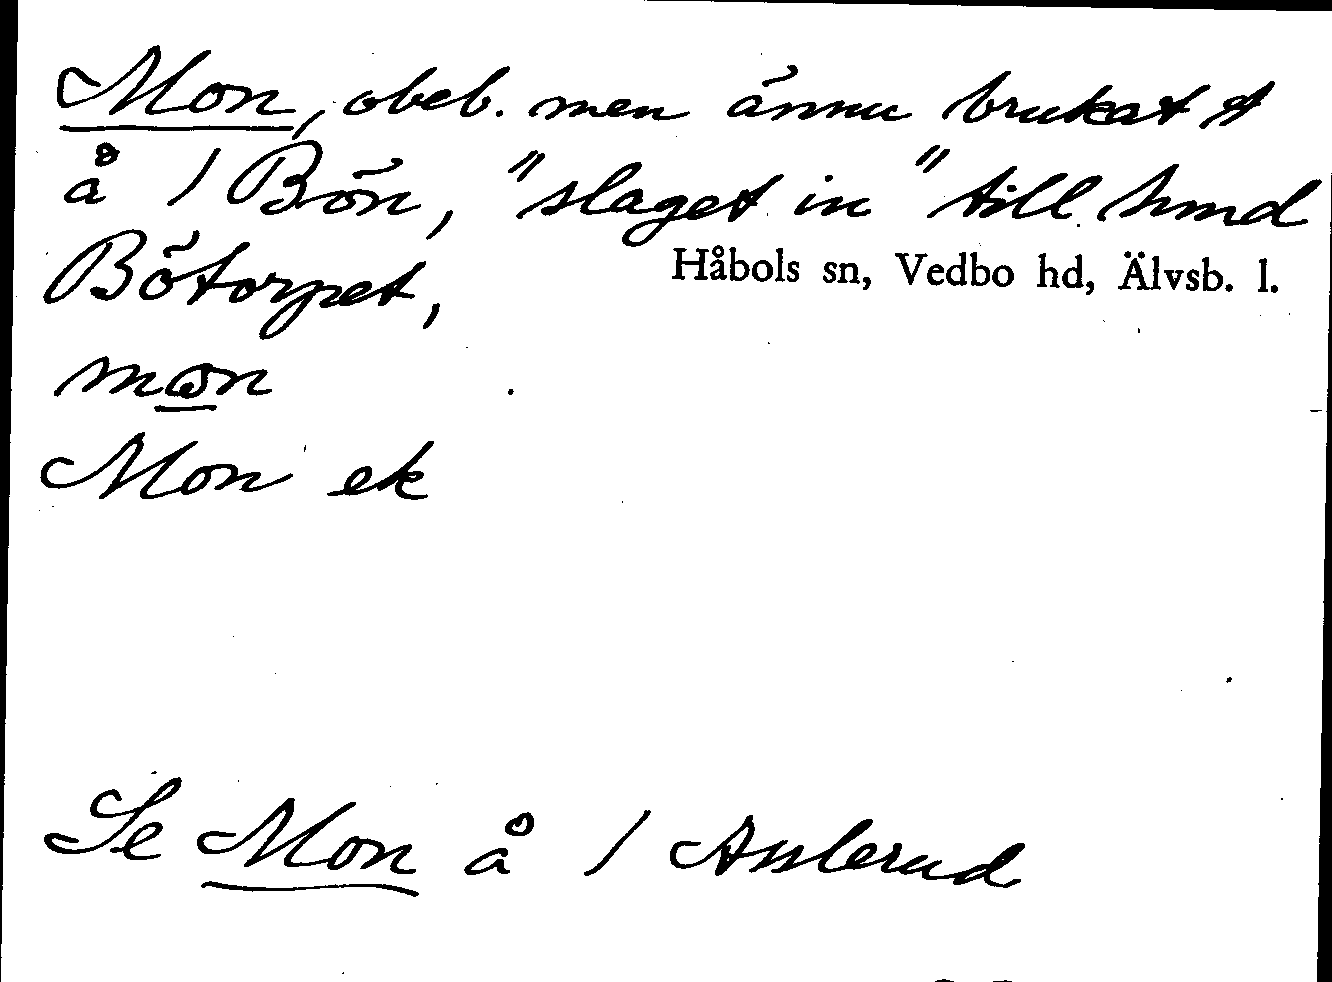 Mon, obeb. men ännu brukat t
å 1 Bön, "slaget in" till hmd
Bötorpet,
Håbols sn, Vedbo hd, Älvsb. l.
mon
Mon ek
Se Mon å 1 Asslerud